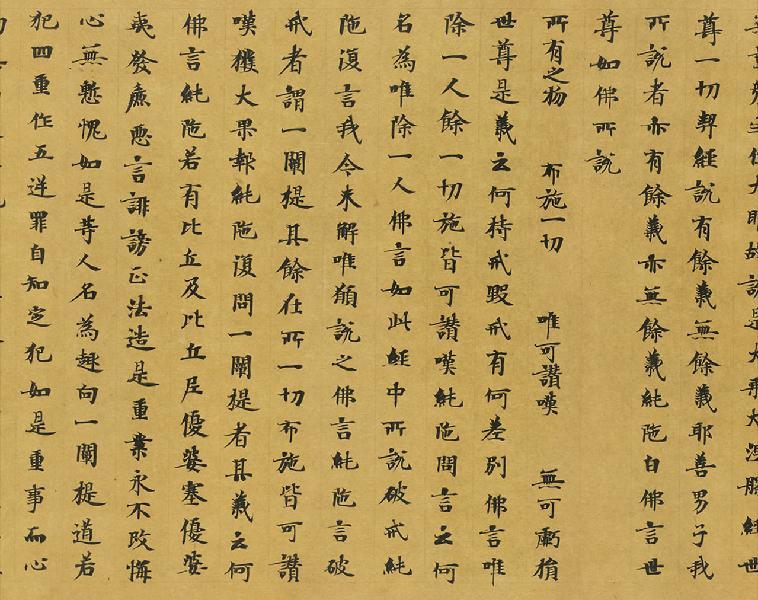 故說是大乘大涅槃經世
尊一切契經說有餘義無餘義耶善男子我
所說者亦有餘義亦無餘義純陀白佛言世
尊如佛所說
所有之物 布施一切 唯可讚嘆 無可虧損
世尊是義云何持戒毀戒有何差別佛言唯
除一人餘一切施皆可讚嘆純陀問言云何
名為唯除一人佛言如此經中所說破戒純
陀復言我今未解唯願說之佛言純陀言破
戒者謂一闡提其餘在所一切布施皆可讚
嘆獲大果報純陀復問一闡提者其義云何
佛言純陀若有比丘及比丘尼優婆塞優婆
夷發麁惡言誹謗正法造是重業永不改悔
心無慙愧如是等人名為趣向一闡提道若
犯四重作五逆罪自知定犯如是重事而心